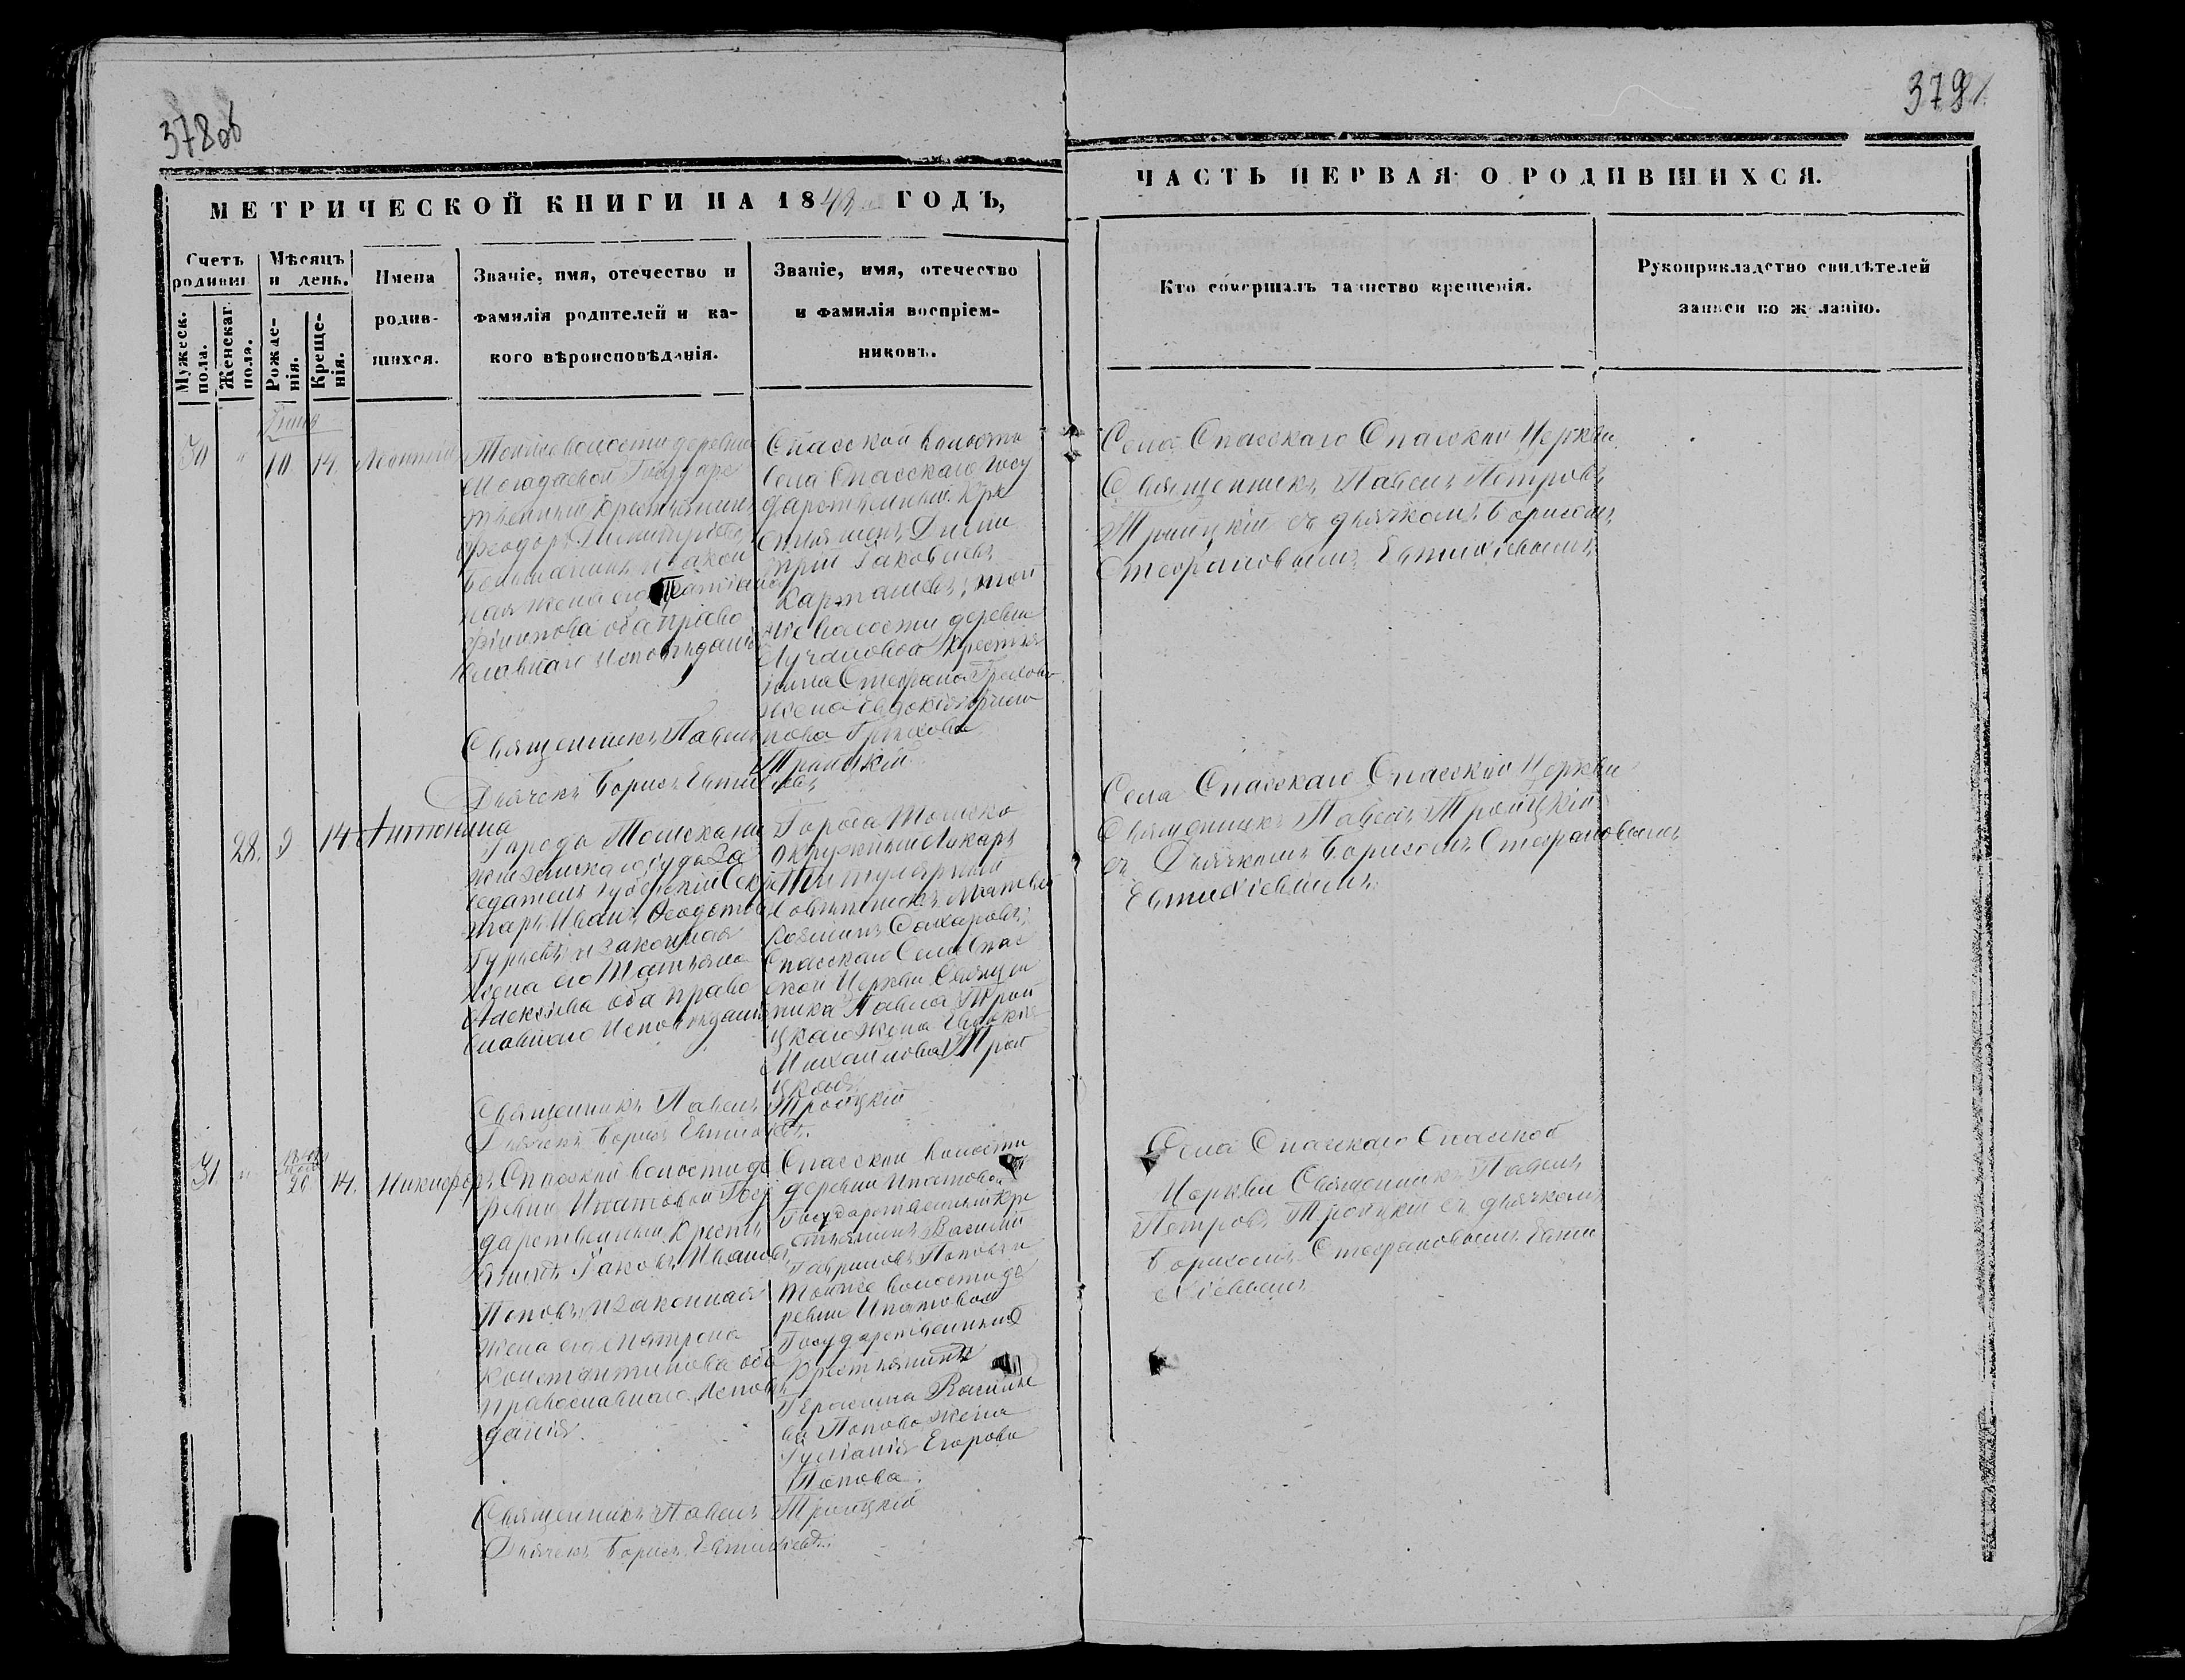 378об
379
МЕТРИЧЕСКОЙ КНИГИ НА 1848 ГОДЪ,
ЧАСТЬ ПЕРВАЯ О РОДИВШИХСЯ.
Счетъ родивш.
Мѣсяцъ и день.
Мужеск. пола.
Женскаг. пола.
Рожденія.
Крещенія.
Имена родившихся.
Званіе, имя, отечество и
фамилія родителей и ка-
кого вѣроисповѣданія.
Званіе, имя, отечество
и фамилія воспріем-
никовъ.
Кто совершалъ таинство крещенія.
Рукоприкладство свидѣтелей
записи по желанію.
30 " 10. 14.
Тойже волости деревни
Государс
твенный Крестьянинъ
Феодоръ Димитріевъ
и закон
ная жена его
Филипова оба право
славнаго исповѣданія
Спасской волости
села Спасскаго Госу
дарственный Кре
стьянинъ Дими
трій Іаковлевъ
Карташевъ, той
же волости деревни
Лучановой Крестья
нина Стефана Грехова
жена Евдокія Филип
пова Грехова
Села Спасскаго Спасской Церкви
Священникъ Павелъ Петровъ
Троицкій съ дьячкомъ Борисомъ
Стефановымъ Евтихіевымъ
Священникъ Павелъ Троицкій
Дьячекъ Борисъ Евтихіевъ
28. 9 14 Антонина
Города Томска
Земскаго суда За
седатель Губернскій Секре
тарь Иванъ Феодотовъ
Гурьевъ и законная
жена его Татьяна
Алексѣева оба право
славнаго исповѣданія
Города Томска
Окружный Лекарь
Титулярный
Совѣтникъ Матвей
Козминъ Сахаровъ;
Спасскаго Села Спас
ской Церкви Священ
ника Павла Трои
цкаго жена Евдокія
Михайлова Трои
цкая.
Села Спасскаго Спасской Церкви
Священникъ Павелъ Троицкій
съ Дьячкомъ Борисомъ Стефановымъ
Евтихіевымъ.
Священникъ Павелъ Троицкій
Дьячекъ Борисъ Евтихіевъ.
31 " 26 14. Никифоръ
Спасской волости де
ревни Ипатовой Госу
дарственный Крестья
нинъ Іаковъ Ивановъ
Поповъ и законная
жена его Матрона
Константинова оба
православнаго исповѣ
данія.
Спасской волости
деревни Ипатовой
Государственный Кре
стьянинъ Василій
Гавриловъ Поповъ и
тойже волости де
ревни Ипатовой
Государственнаго
Крестьянина
Герасима Василье
ва Попова жена
Егорова
Попова.
Села Спасскаго Спасской
Церкви Священникъ Павелъ
Петровъ Троицкій съ дьячкомъ
Борисомъ Стефановымъ Евти
хіевымъ
Священникъ Павелъ Троицкій
Дьячекъ Борисъ Евтихіевъ.